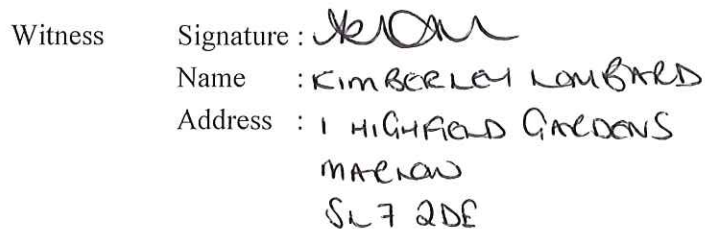 Witness Signature :
Name : KIMBERLEY LOMBARD
Address : 1 HIGHFIELD GARDENS
MARLOW
SL7 2DE